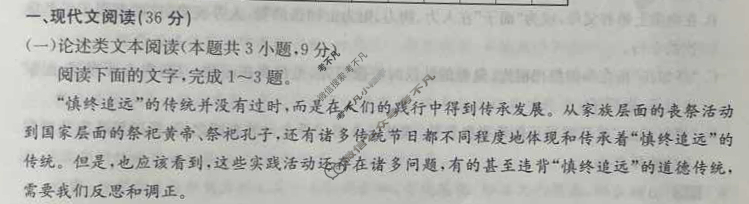 一、现代文阅读(36分)
(一)论述类文本阅读(本题共3小题,9分)
阅读下面的文字,完成1~3题。
“慎终追远”的传统并没有过时,而是在人们的践行中得到传承发展。从家族层面的丧祭活动
到国家层面的祭祀黄帝、祭祀孔子,还有诸多传统节日都不同程度地体现和传承着“慎终追远”的
传统。但是,也应该看到,这些实践活动还存在诸多问题,有的甚至违背“慎终追远”的道德传统,
需要我们反思和调正。